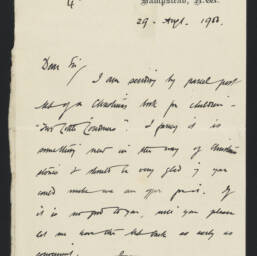 Hampstead, N.W.
29. Augt. 1900.
Dear Sir
I am sending by parcel post
MS of a Christmas book for children -
"Two Little Londoners". I fancy it is
something new in the way of Christmas
stories & should be very glad if you
could make me an offer for it. If
it is no good to you, will you please
let me have the MS back as early as
convenient.